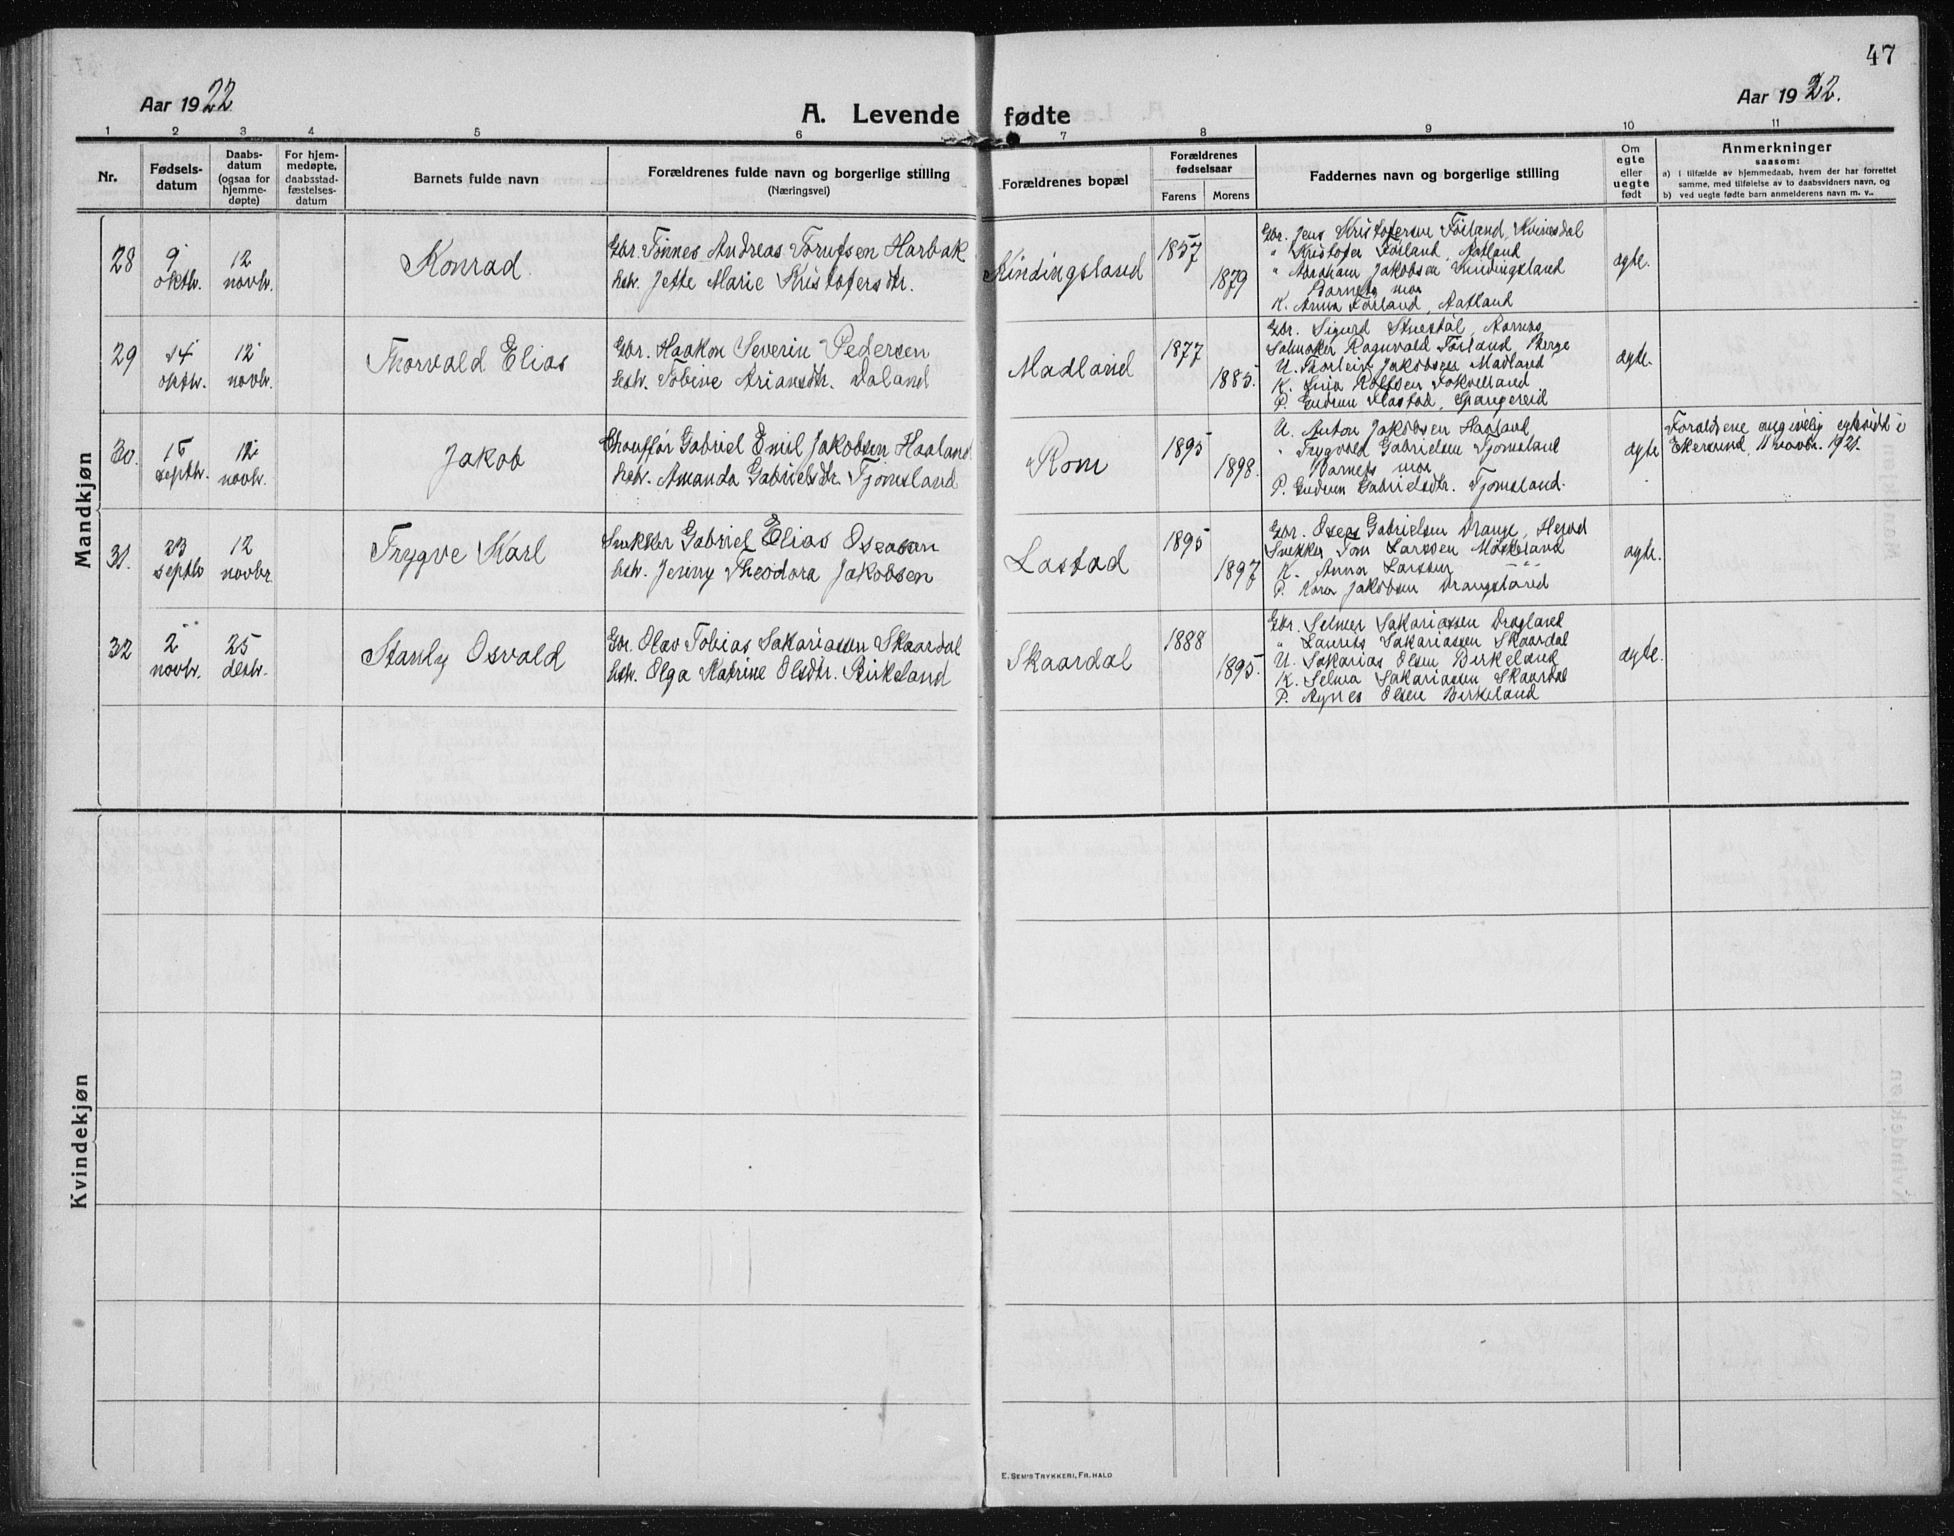 47
Aar 1922
A. Levende fødte
Aar 1922.
1 2 3 4 5 6 7 8 9 10 11
Nr.
Fødsels-
datum
Daabs-
datum
(ogsaa for
hjemme-
døpte)
For hjem-
medøpte,
daabsstad-
fæstelses-
datum
Barnets fulde navn
Forældrenes fulde navn og borgerlige stilling
(Næringsvei)
Forældrenes bopæl
Forældrenes
fødselsaar
Farens Morens
Faddernes navn og borgerlige stilling
Om
egte
eller
uegte
født
Anmerkninger
saasom:
a) i tilfælde av hjemmedaab, hvem der har forrettet
samme, med tilføielse av to daabsvidners navn, og
b) ved uegte fødte barn anmelderens navn m. v..
Mandkjøn
28
9
oktbr.
12
novbr.
Konrad
Gbr. Tønnes Andreas Harbak
hstr. Jette Marie Kristofersdtr.
1857
1879
Gbr. Jens Kristofersen Førland, Kvinesdal
" Kristofer Førland, Aatland
" Abraham Jakobsen
Barnets mor
K. Anna Førland, Aatland
egte.
29
14
oktbr.
12
novbr.
Thorvald Elias
Gbr. Haakon Severin Pedersen
hstr. Tobine Ariansdtr.
Madland
1877
1885.
Gbr. Sigurd
Ragnvald Førland Berge
U. Thorleif Jakobsen Madland
K.
P. Gudrun Spangereid
egte.
30.
15
septbr.
12
novbr.
Jakob
Chauffør Gabriel Emil Jakobsen Haaland
hstr. Amanda Gabrielsdtr. Tjomsland
Rom
1895
1898.
U. Anton Jakobsen Haaland
" Trygvald Gabrielsen Tjomsland
Barnets mor
P. Gudrun Gabrielsdtr. Tjomsland.
egte
Forældrene angivelig egteviet i
Ekersund, 11 novbr. 1921.
31.
23
septbr
12
novbr.
Trygve Karl
Snekker Gabriel Elias Oseasen
hstr. Jenny Theodora Jakobsen
Lastad
1895
1897
Gbr. Oseas Gabrielsen Drange, Herad
Snekker Tom Larssen
K. Anna Larssen
P. Kara Jakobsen Drangsland
egte.
32
2
novbr.
25
desbr.
Stanly Osvald
Gbr. Olav Tobias Sakariassen Skaardal
hstr. Olga Katrine Olsdtr. Birkeland
Skaardal
1888
1895.
Gbr. Selmer Sakariassen Drogland
" Laurits Sakariassen Skaardal
U. Sakarias Olsen Birkeland
K. Selma Sakariassen Skaardal
P. Agnes Olsen Birkeland
egte.
Kvindekjøn
E. Sem's Trykkeri, Fr.hald